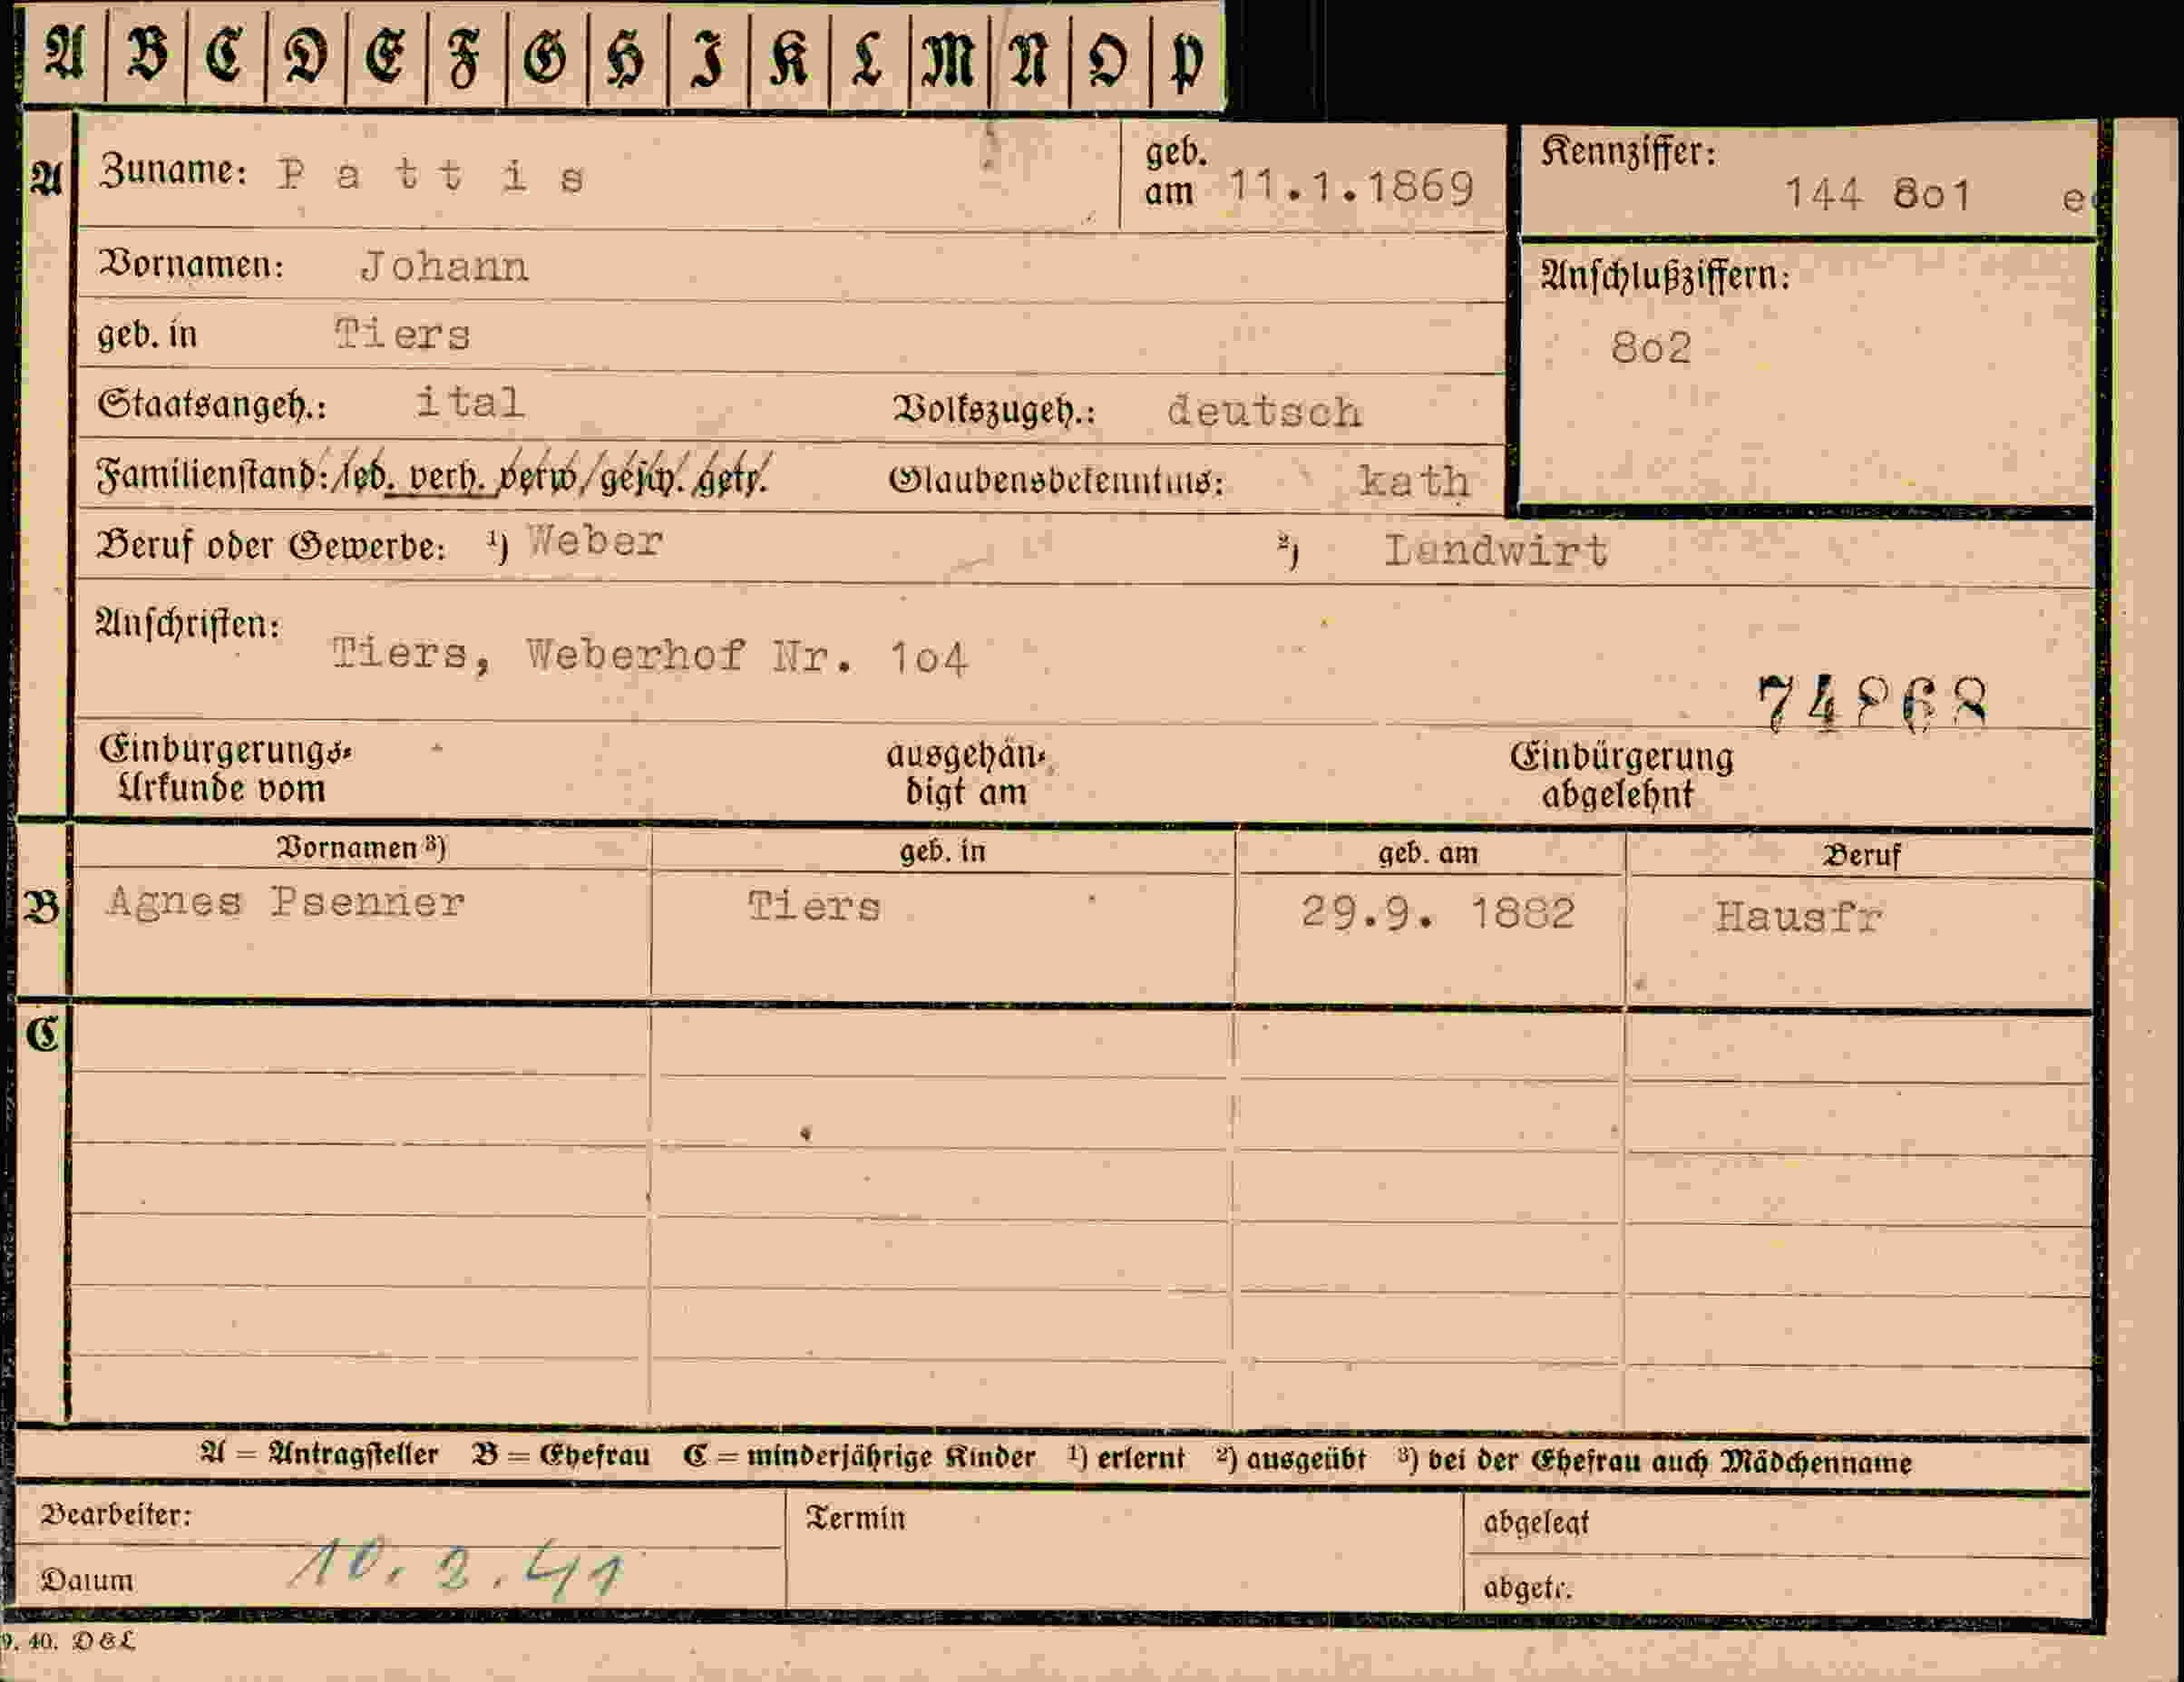 A B C D E F G H I K L M N O P
A Zuname: Pattis geb. am 11.1.1869 Kennziffer: 144 8o1
Vornamen: Johann Anschlußziffern:
geb. in Tiers 8o2
Staatsangeh.: ital Volkszugeh.: deutsch
Familienstand: led. verh. verw. gesch. getr. Glaubensbekenntnis: kath
Beruf oder Gewerbe: ¹) Weber ²) Landwirt
Anschriften: Tiers, Weberhof Nr. 1o4
Einbürgerungs- ausgehän- Einbürgerung
Urkunde vom digt am abgelehnt
Vornamen ³) geb. in geb. am Beruf
B Agnes Psenner Tiers 29.9. 1882 Hausfr
C
A = Antragsteller B = Ehefrau C = minderjährige Kinder ¹) erlernt ²) ausgeübt ³) bei der Ehefrau auch Mädchenname
Bearbeiter: Termin abgelegt
Datum 10.2.41 abgetr.
9. 40. D&L